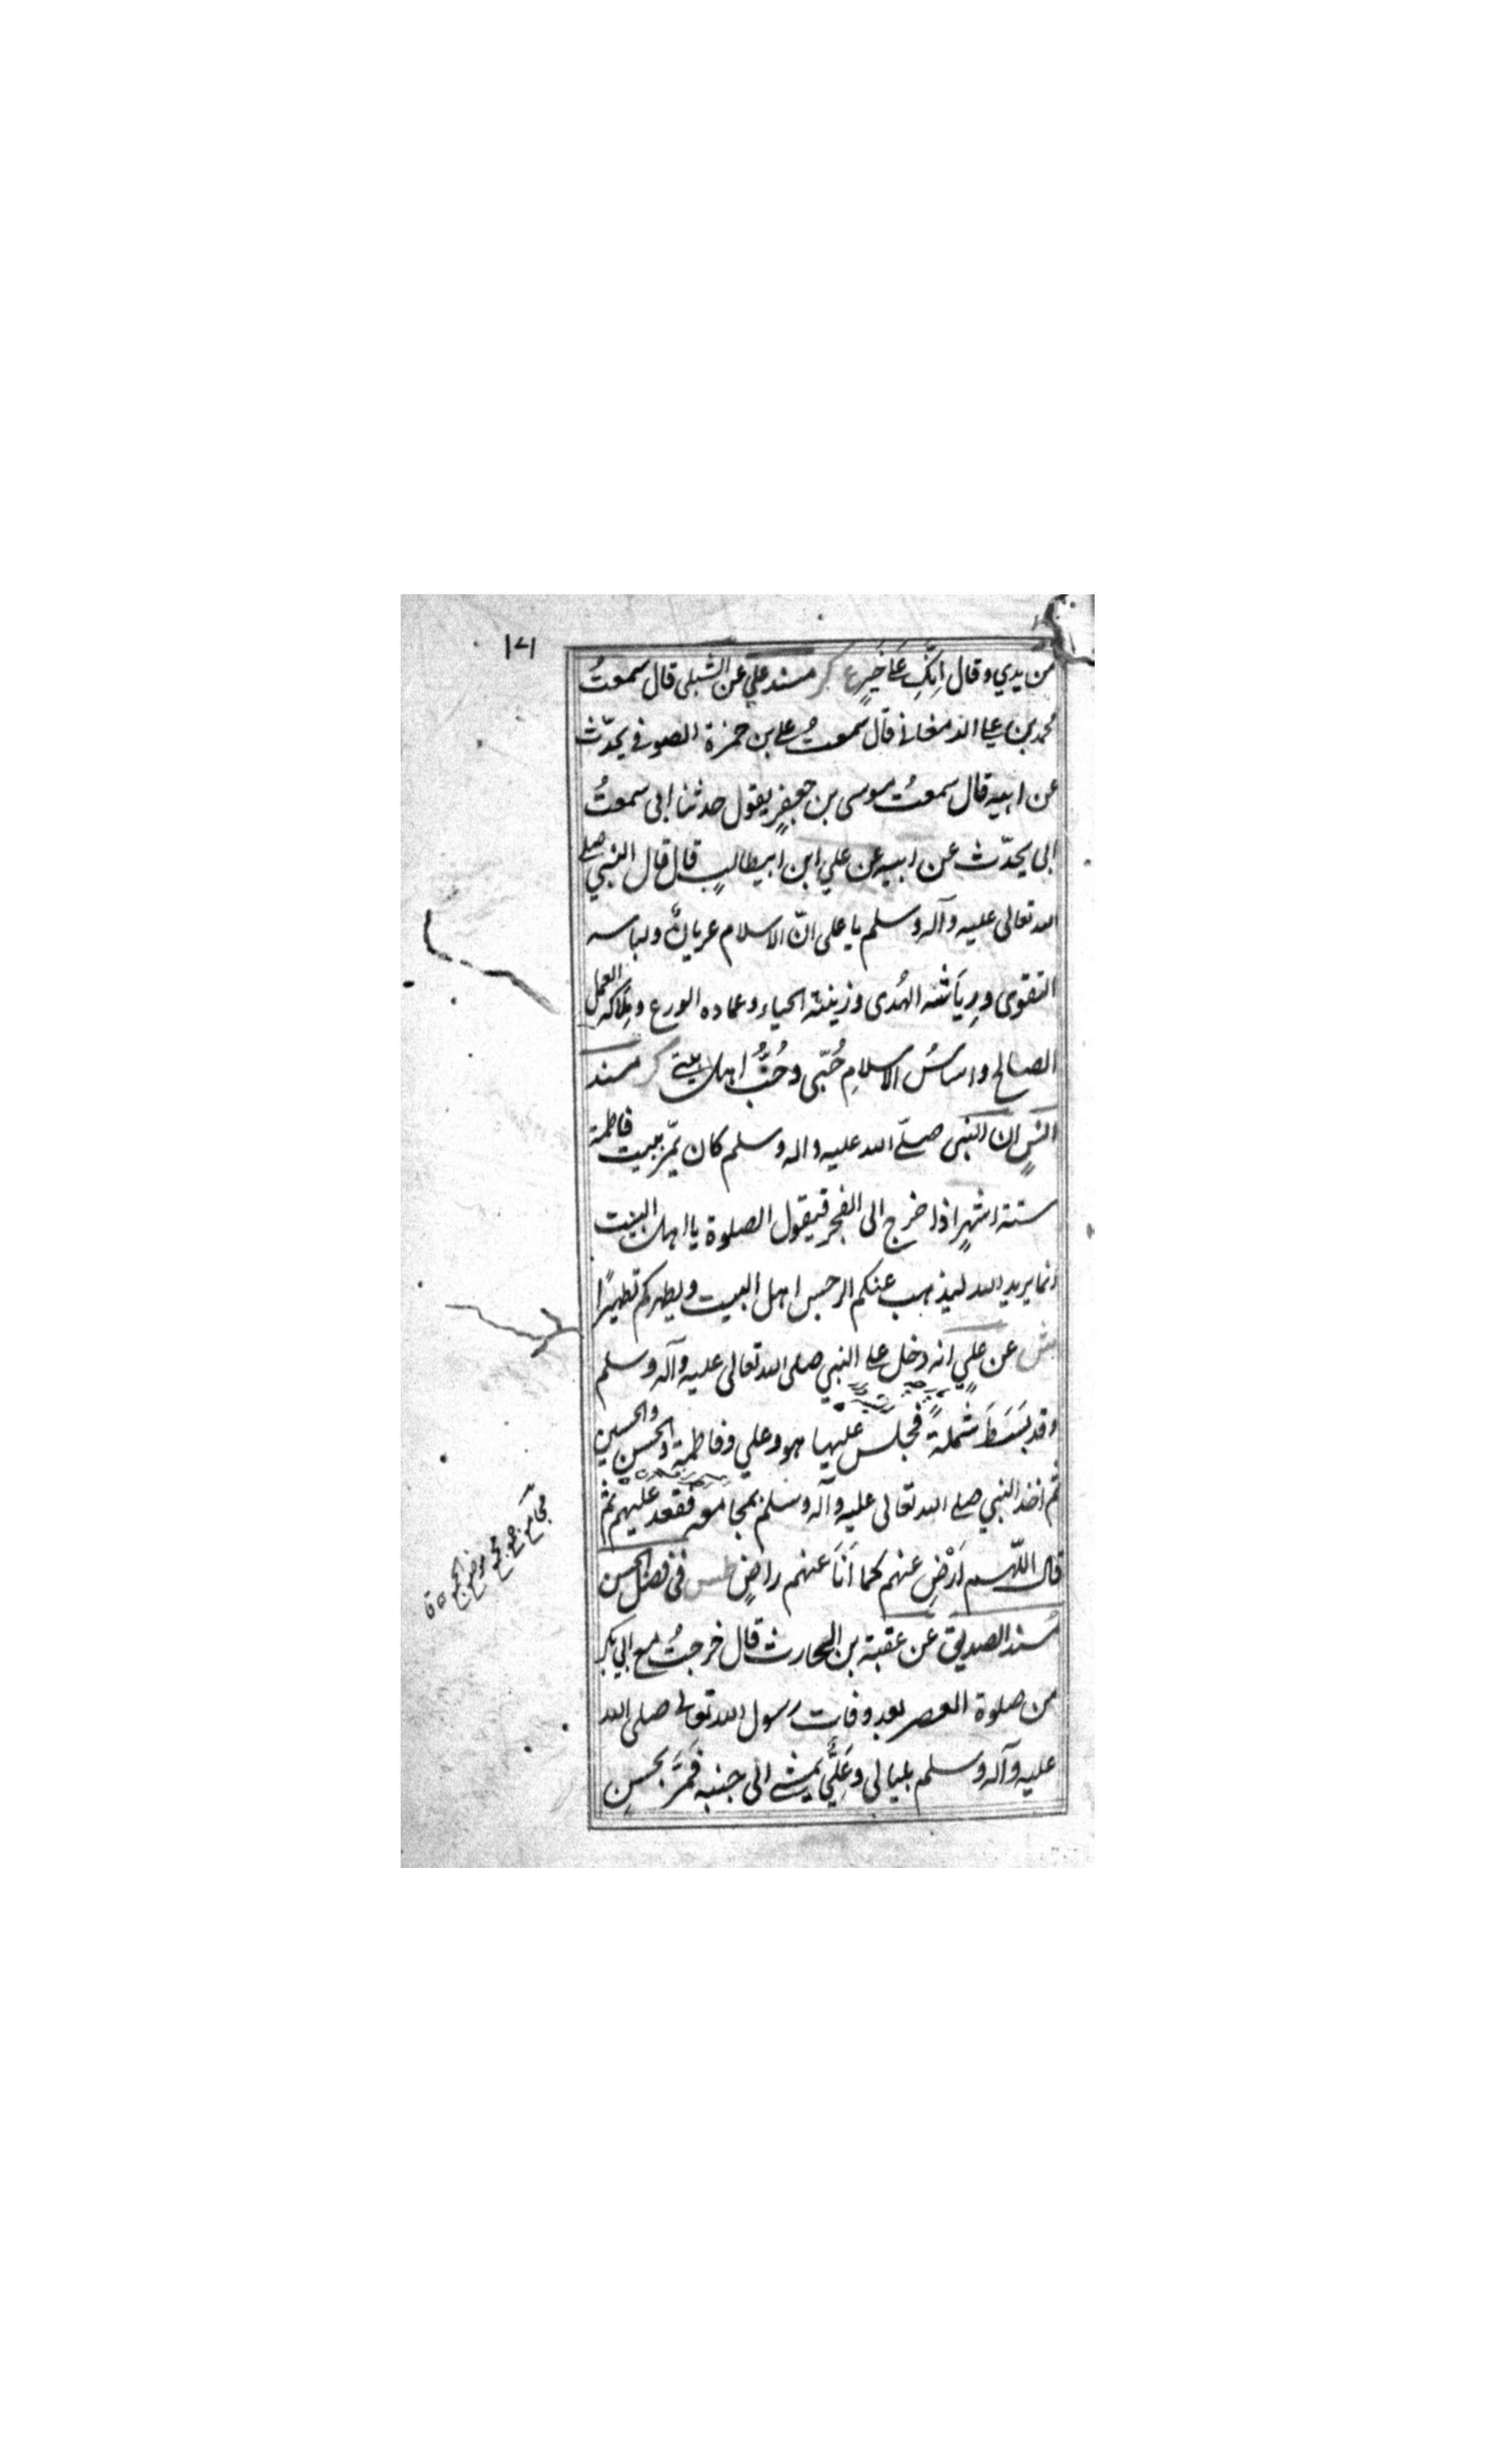 ١٧١
من يدي وقال اِنَّكِ عَلَى خَيرٍ ع كر مسند علي عن الشبلي قال سمعتُ
محمد بن علي الدامغاني قال سمعتُ علي بن حمزة الصوفي يحدّث
عن ابيه قال سمعتُ موسى بن جعفرٍ يقول حدثنا ابى سمعتُ
ابى يحدّث عن ابيه عن علي ابن ابيطالبٍ قال قال النبي صلى
الله تعالى عليه وآله وسلم يا على انّ الاسلام عريانٌ ولباسه
التقوى ورِيَاشه الهُدى وزينته الحياء وعماده الورع ومِلاكه العمل
الصالح واساسُ الاسلامِ حُبّى وحُبُّ اهل بيتى كر مسند
انسٍ انّ النبى صلّى الله عليه واله وسلم كان يمّر ببيت فاطمة
ستة اشهرٍ اذا خرج الى الفجر فيقول الصلوة يا اهل البيت
انما يريد الله ليذهب عنكم الرجس اهل البيت ويطهركم تطهيرًا
ش عن علي انه دخل على النبي صلى الله تعالى عليه وآله وسلم
وقد بَسَطَ شَملةً فجلس عليها هو وعلي وفاطمة والحسن والحسين
ثم اخذ النبي صلى الله تعالى عليه وآله وسلم بمجامعه فقعد عليهم ثم
قال اللّهم اَرْضِ عنهم كما اَنَا عنهم راضٍ طس فى فضل الحسن
مُسند الصديق عن عقبة بن الحارث قال خرجتُ مع ابي بكر
من صلوة العصر بعد وفات رسول الله تعالى صلى الله
عليه وآله وسلم بليالى وعَلَيٌّ يمشى الى جنبه فَمَرَّ بحسنِ
مجامع جمع مجمع موضع الجمع ق